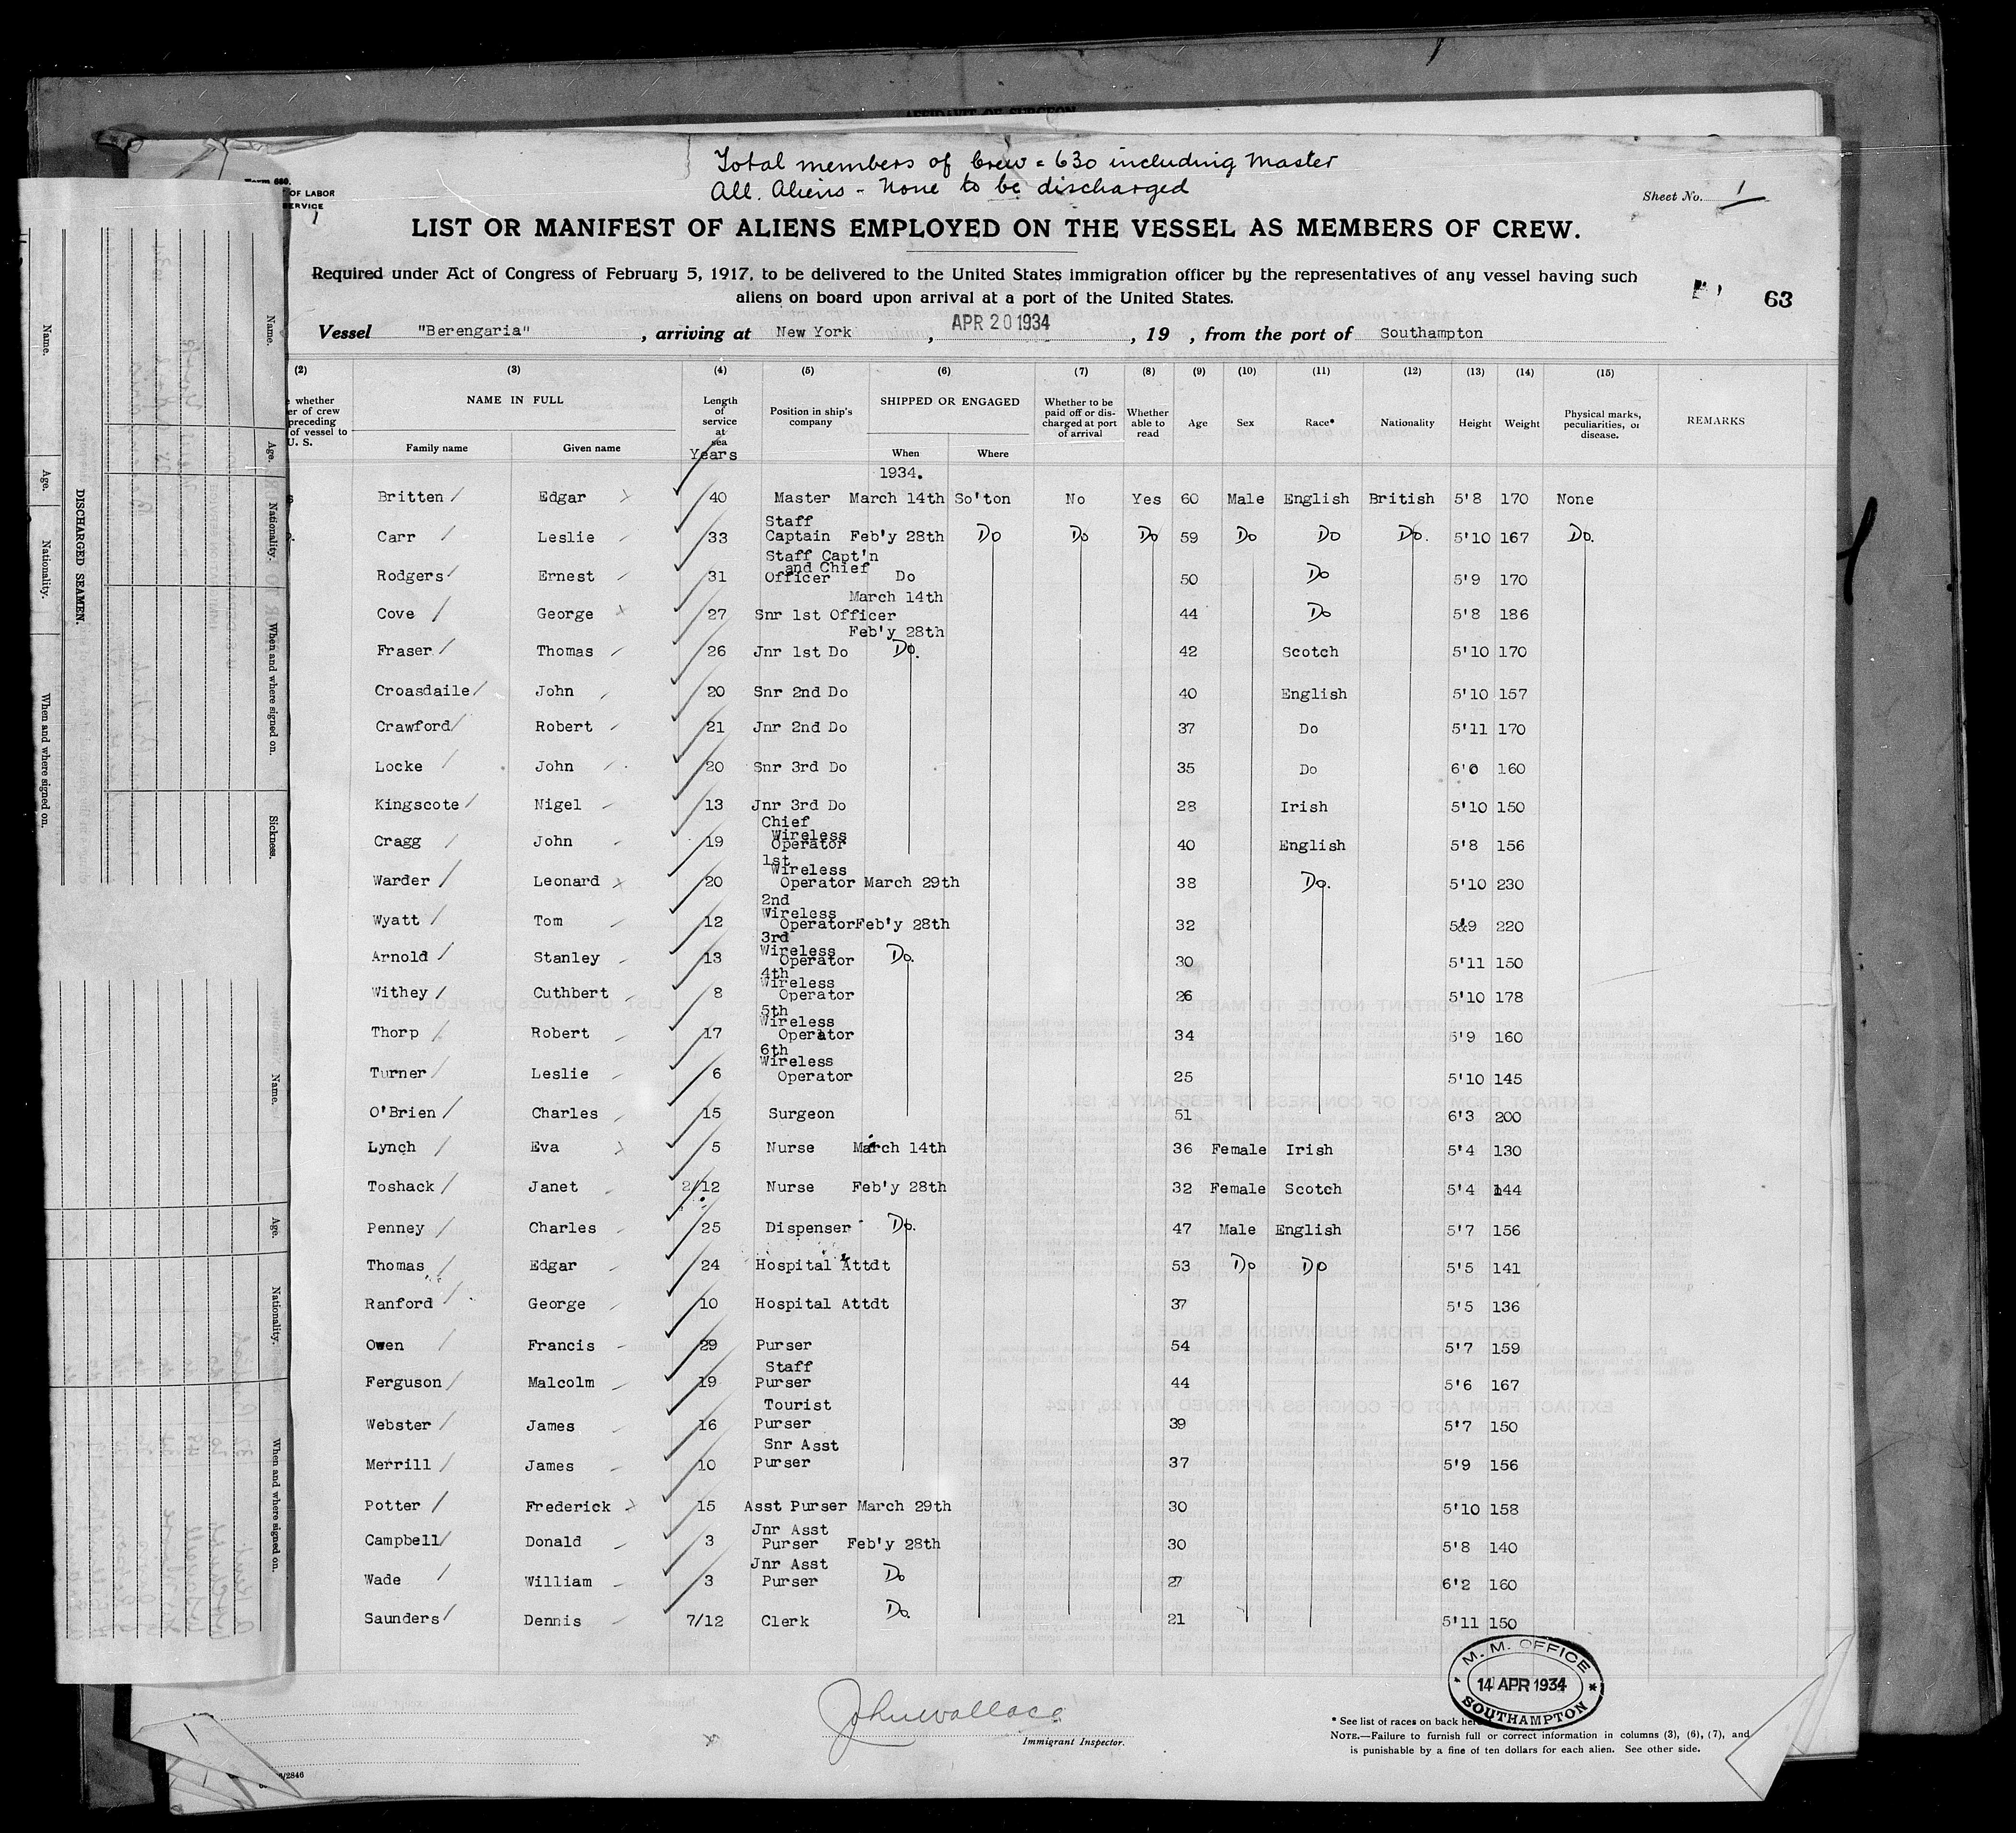 AFFIDAVIT OF SURGEON
Total members of Crew = 630 including Master
All Aliens - None to be discharged
Form 680.
OF LABOR
SERVICE
1
Sheet No. 1
LIST OR MANIFEST OF ALIENS EMPLOYED ON THE VESSEL AS MEMBERS OF CREW.
Required under Act of Congress of February 5, 1917, to be delivered to the United States immigration officer by the representatives of any vessel having such
aliens on board upon arrival at a port of the United States.
63
Vessel "Berengaria", arriving at New York, APR 20 1934, 19 , from the port of Southampton
(2) (3) (4) (5) (6) (7) (8) (9) (10) (11) (12) (13) (14) (15)
whether
er of crew
preceding
of vessel to
U. S.
NAME IN FULL
Family name Given name
Length of service at sea
Years
Position in ship's company
SHIPPED OR ENGAGED
When Where
Whether to be paid off or discharged at port of arrival
Whether able to read
Age Sex Race* Nationality Height Weight
Physical marks, peculiarities, or disease.
REMARKS
1934.
Britten Edgar 40 Master March 14th So'ton No Yes 60 Male English British 5'8 170 None
Carr Leslie 33 Staff Captain Feb'y 28th Do Do Do 59 Do Do Do. 5'10 167 Do.
Rodgers Ernest 31 Staff Capt'n and Chief Officer Do 50 Do 5'9 170
Cove George 27 Snr 1st Officer March 14th 44 Do 5'8 186
Fraser Thomas 26 Jnr 1st Do Feb'y 28th Do. 42 Scotch 5'10 170
Croasdaile John 20 Snr 2nd Do 40 English 5'10 157
Crawford Robert 21 Jnr 2nd Do 37 Do 5'11 170
Locke John 20 Snr 3rd Do 35 Do 6'0 160
Kingscote Nigel 13 Jnr 3rd Do 28 Irish 5'10 150
Cragg John 19 Chief Wireless Operator 40 English 5'8 156
Warder Leonard 20 1st Wireless Operator March 29th 38 Do. 5'10 230
Wyatt Tom 12 2nd Wireless Operator Feb'y 28th 32 5'9 220
Arnold Stanley 13 3rd Wireless Operator Do. 30 5'11 150
Withey Cuthbert 8 4th Wireless Operator 26 5'10 178
Thorp Robert 17 5th Wireless Operator 34 5'9 160
Turner Leslie 6 6th Wireless Operator 25 5'10 145
O'Brien Charles 15 Surgeon 51 6'3 200
Lynch Eva 5 Nurse March 14th 36 Female Irish 5'4 130
Toshack Janet 2/12 Nurse Feb'y 28th 32 Female Scotch 5'4 144
Penney Charles 25 Dispenser Do. 47 Male English 5'7 156
Thomas Edgar 24 Hospital Attdt 53 Do Do 5'5 141
Ranford George 10 Hospital Attdt 37 5'5 136
Owen Francis 29 Purser 54 5'7 159
Ferguson Malcolm 19 Staff Purser 44 5'6 167
Webster James 16 Tourist Purser 39 5'7 150
Merrill James 10 Snr Asst Purser 37 5'9 156
Potter Frederick 15 Asst Purser March 29th 30 5'10 158
Campbell Donald 3 Jnr Asst Purser Feb'y 28th 30 5'8 140
Wade William 3 Jnr Asst Purser Do 27 6'2 160
Saunders Dennis 7/12 Clerk Do. 21 5'11 150
M. M. OFFICE
14 APR 1934
SOUTHAMPTON
John Wallace
Immigrant Inspector.
* See list of races on back her
NOTE.—Failure to furnish full or correct information in columns (3), (6), (7), and
is punishable by a fine of ten dollars for each alien. See other side.
/2846
DISCHARGED SEAMEN.
Name. Age. Nationality. When and where signed on.
Name. Age. Nationality. When and where signed on. Sickness.
Name. Age. Nationality. When and where signed on.